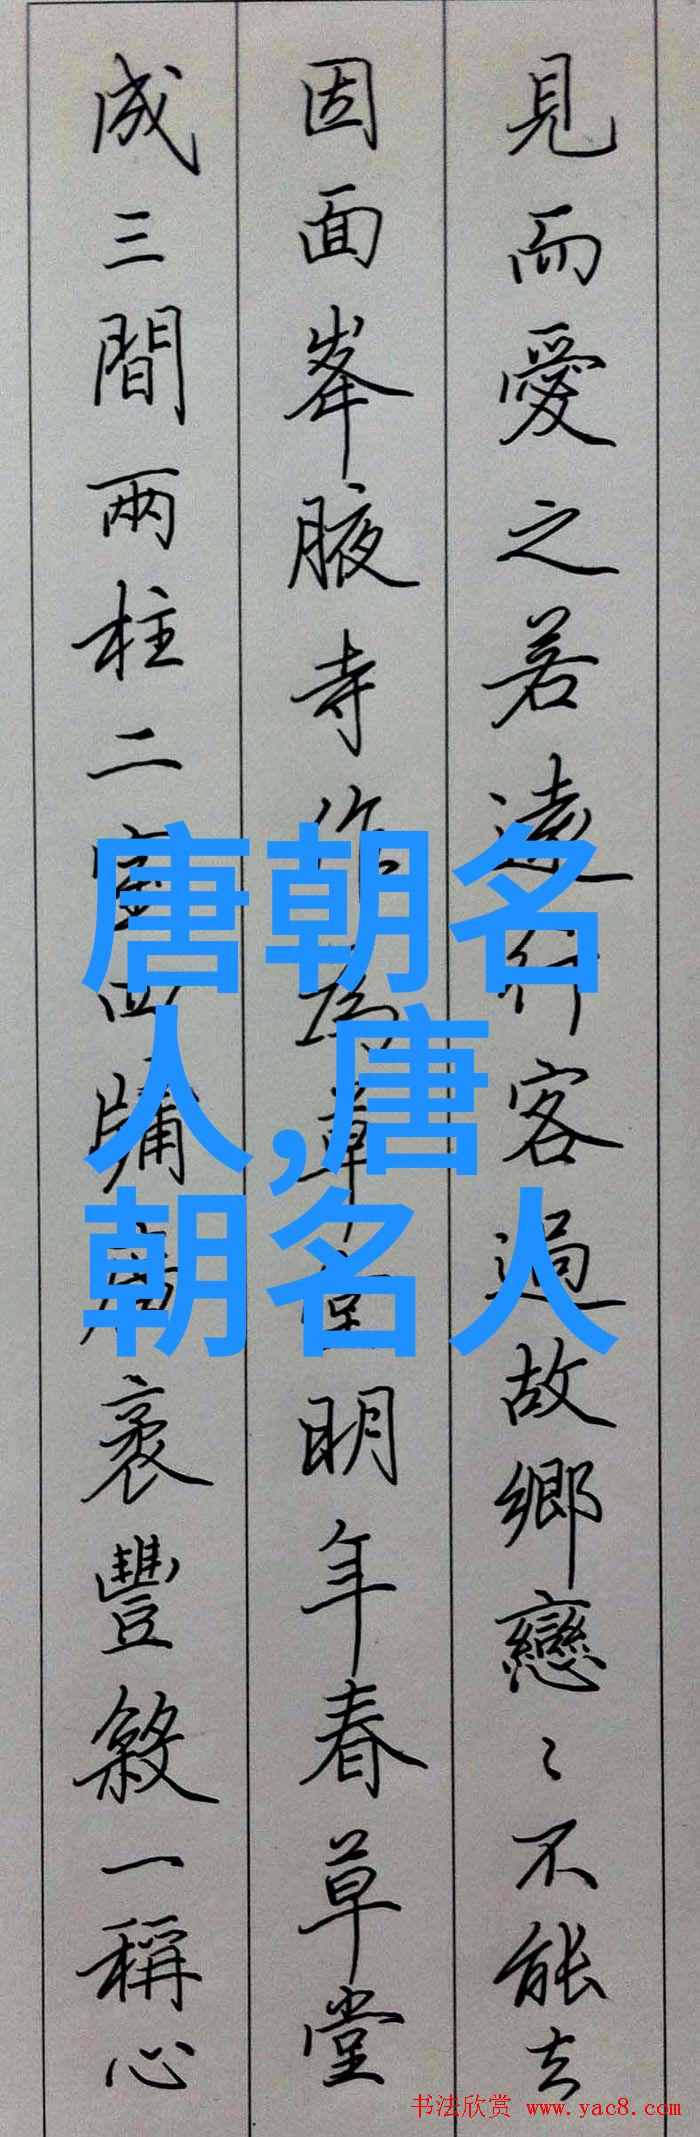 見而愛之若遠行客過故鄉戀〻不能去
因面峯腋寺作為草堂明年春草堂
成三間兩柱二室四牖廣袤豐殺一稱心
唐朝名
人,唐
朝名人
书法欣赏 www.yac8.com